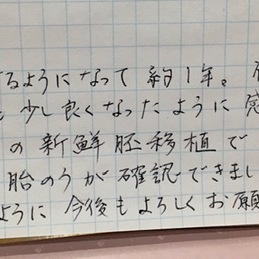 るようになって 約1年。
少し良くなったように 感
の 新鮮胚移植で
胎のうが 確認できまし
ように 今後もよろしくお願